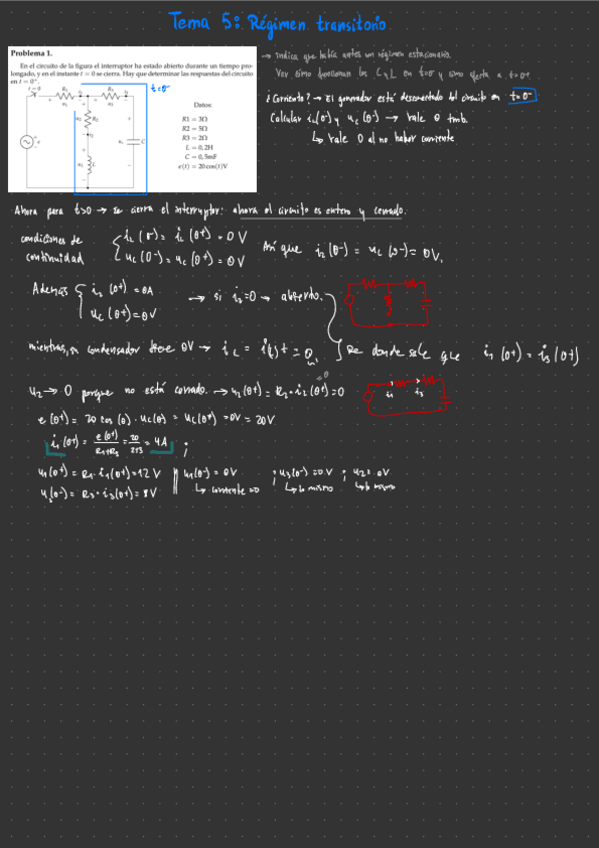 Tema 5: Régimen transitorio.
Problema 1.
En el circuito de la figura el interruptor ha estado abierto durante un tiempo prolongado, y en el instante t = 0 se cierra. Hay que determinar las respuestas del circuito en t = 0⁺.
t=0
t=0⁻
Datos:
R1 = 3Ω
R2 = 5Ω
R3 = 2Ω
L = 0,2H
C = 0,5mF
e(t) = 20cos(t)V
→ Indica que había antes un régimen estacionario.
Ver cómo funcionan los C y L en t=0⁻ y cómo afecta a t=0+.
¿Corriente? → El generador está desconectado del circuito en t=0⁻
Calcular iL(0-) y uc(0-) → vale 0 tmb.
↳ vale 0 al no haber corriente
Ahora para t>0 → se cierra el interruptor: ahora el circuito es entero y cerrado.
condiciones de continuidad
iL(0-) = iL(0+) = 0V
uc(0-) = uc(0+) = 0V
Así que iL(0-) = uc(0-) = 0V.
Además
i2(0+) = 0A
uc(0+) = 0V
→ si i2=0 → abierto.
mientras, un condensador tiene 0V →
De donde sale que i1(0+) = i3(0+)
u2 → 0 porque no está cerrado. → u2(0+) = R2·i2(0+) = 0
i1 i3
e(0+) = 20 cos(0) · uc(0) = uc(0+) = 0V = 20V
i1(0+) = e(0+)/R1+R3 = 20/2+3 = 4A ;
u1(0+) = R1·i1(0+) = 12V
u3(0-) = R3·i3(0+) = 8V
u1(0-) = 0V
↳ corriente = 0
; u3(0-) = 0V
↳ lo mismo
; u2 = 0V
↳ lo mismo